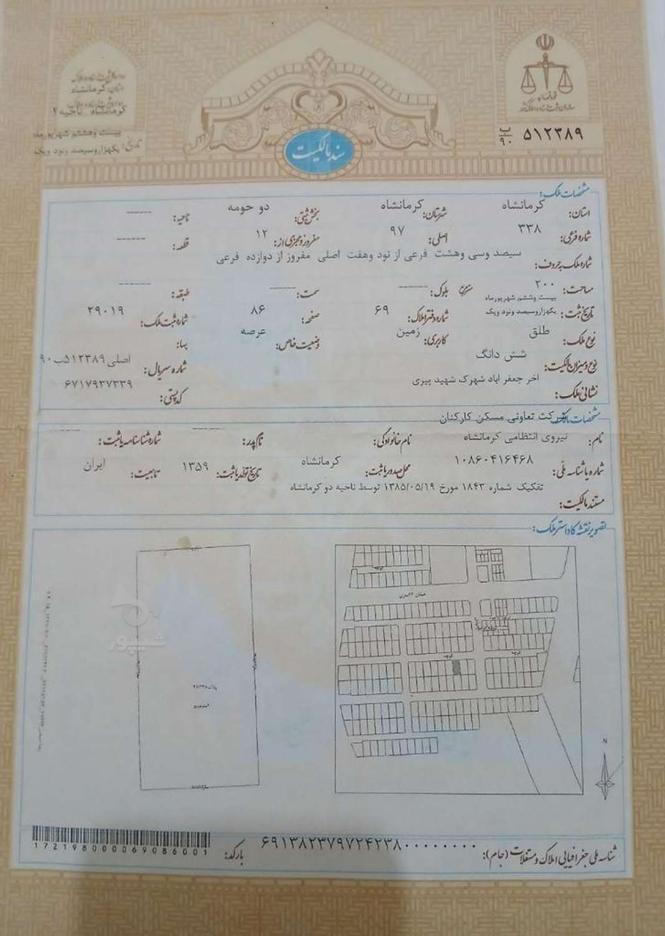 استان: کرمانشاه
کرمانشاه ناحیه ۲
بیست وهشتم شهریورماه
تاریخ: یکهزاروسیصد ونود ویک
سند مالکیت
۵۱۲۳۸۹ ب ۹۰
مشخصات ملک:
استان: کرمانشاه شهرستان: کرمانشاه بخش ثبتی: دو حومه ناحیه: ------
شماره فرعی: ۳۳۸ اصلی: ۹۷ مفروز و مجزی از: ۱۲ قطعه: ------
شماره ملک به حروف: سیصد وسی وهشت فرعی از نود وهفت اصلی مفروز از دوازده فرعی
مساحت: ۲۰۰ مترمربع بلوک: ------ سمت: ------ طبقه: ------
تاریخ ثبت: بیست وهشتم شهریورماه یکهزاروسیصد ونود ویک شماره دفتر املاک: ۶۹ صفحه: ۸۶ شماره ثبت ملک: ۲۹۰۱۹
نوع ملک: طلق کاربری: زمین وضعیت خاص: عرصه بهاء:
نوع و میزان مالکیت: شش دانگ شماره سریال: اصلی ۵۱۲۳۸۹ب۹۰
نشانی ملک: اخر جعفر اباد شهرک شهید پیری کد پستی: ۶۷۱۷۹۳۷۳۳۹
مشخصات مالک: شرکت تعاونی مسکن کارکنان
نام: نیروی انتظامی کرمانشاه نام خانوادگی: نام پدر: ------ شماره شناسنامه یا ثبت: ------
شماره یا شناسه ملی: ۱۰۸۶۰۴۱۶۴۶۸ محل صدور یا ثبت: کرمانشاه تاریخ تولد یا ثبت: ۱۳۵۹ تابعیت: ایران
مستند مالکیت: تفکیک شماره ۱۸۴۳ مورخ ۱۳۸۵/۰۵/۱۹ توسط ناحیه دو کرمانشاه
تصویر نقشه کاداستر ملک:
شیپور
N
شناسه ملی جغرافیایی املاک و مستغلات (جام): ۶۹۱۳۸۲۳۷۹۷۲۴۲۳۸۰۰۰۰۰۰۰۰۰
بارکد: 172198000069086001